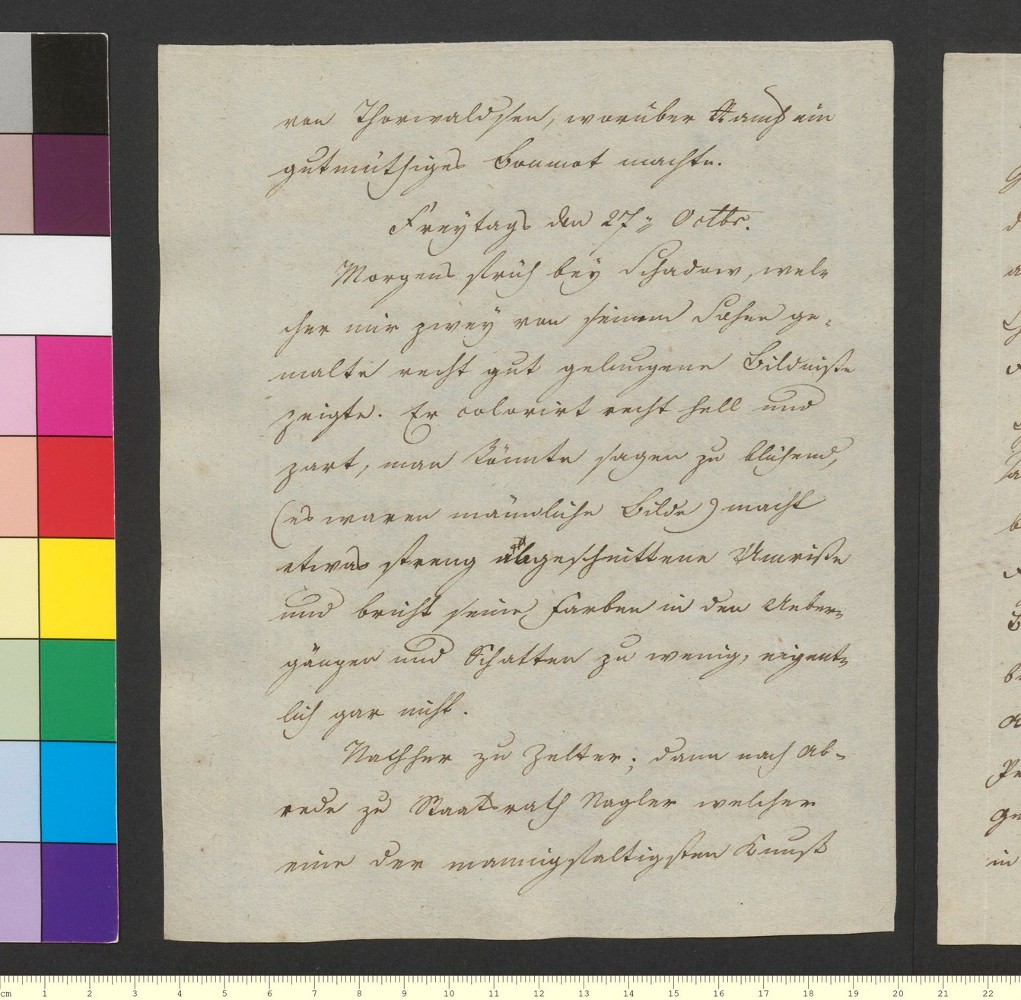 von Thorwaldsen, worüber Rauch ein
gutmüthiges Bonmot machte.
Freytags den 27„ Octbr.
Morgens früh bey Schadow, wel-
cher mir zwey von seinem Sohne ge-
malte recht gut gelungene Bildniße
zeigte. Er colorirt recht hell und
zart, man könnte sagen zu blühend,
(es waren männliche Bilde) macht
etwas streng abgeschnittene Umriße
und bricht seine Farben in den Ueber-
gängen und Schatten zu wenig, eigent-
lich gar nicht.
Nachher zu Zelter; dann nach Ab-
rede zu Staatsrath Nagler welcher
eine der mannigfaltigsten Kunst